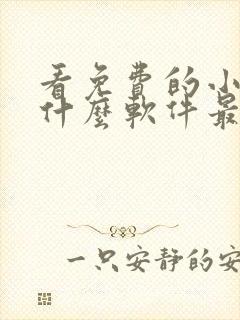 看免費的小
什麼軟件最
一只安靜的安